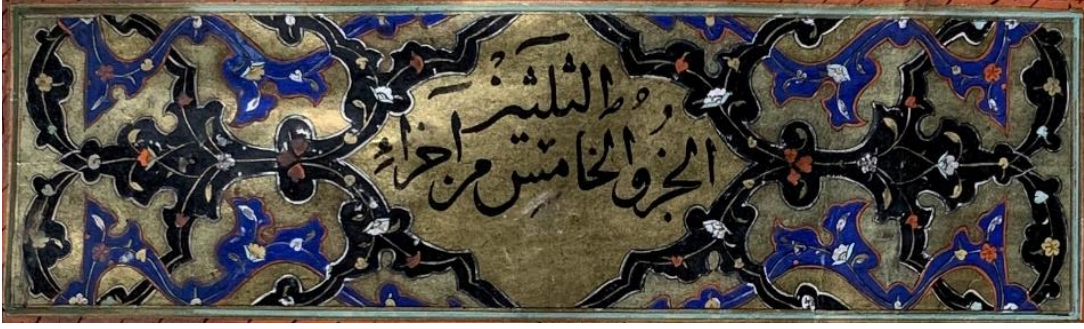 الجزُوُ الخامس من اجزَاءِ
الثلثين